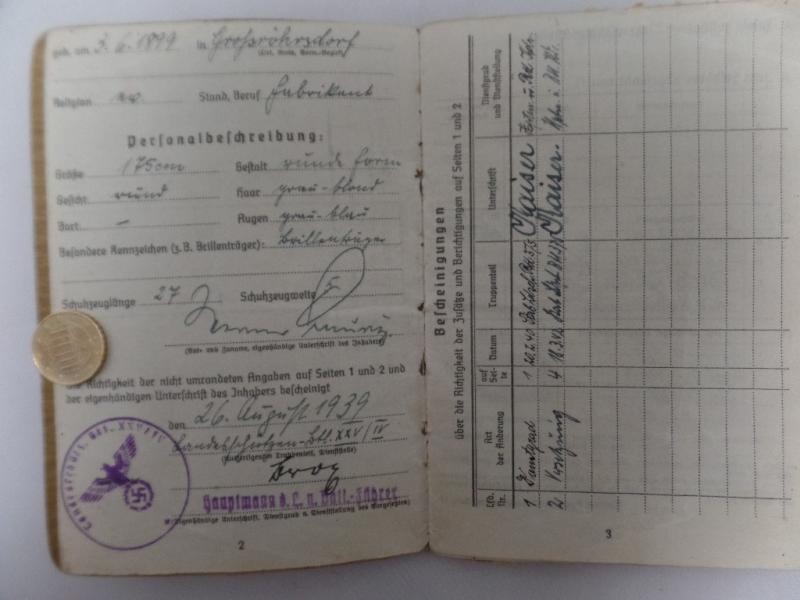 geb. am 3. 6. 1899 in Großröhrsdorf
(Ort, Kreis, Verw.-Bezirk)
Religion ev. Stand, Beruf Fabrikant
Personalbeschreibung:
Größe 175 cm Gestalt runde Form
Gesicht rund Haar grau-blond
Bart – Augen grau-blau
Besondere Kennzeichen (z. B. Brillenträger): Brillenträger
Schuhzeuglänge 27 Schuhzeugweite 5
(Vor- und Zuname, eigenhändige Unterschrift des Inhabers)
Die Richtigkeit der nicht umrandeten Angaben auf Seiten 1 und 2 und
der eigenhändigen Unterschrift des Inhabers bescheinigt
den 26. August 1939
Landesschützen-Btl. XXV/IV
(Ausfertigender Truppenteil, Dienststelle)
Hauptmann d. L. u. Batl.-Führer
(Eigenhändige Unterschrift, Dienstgrad u. Dienststellung des Vorgesetzten)
2
Bescheinigungen
über die Richtigkeit der Zusätze und Berichtigungen auf Seiten 1 und 2
Lfd. Nr.
Art der Änderung
auf Seite
Datum
Truppenteil
Unterschrift
Dienstgrad und Dienststellung
1 Dienstgrad 1 Kaiser
2 4 Kaiser
3